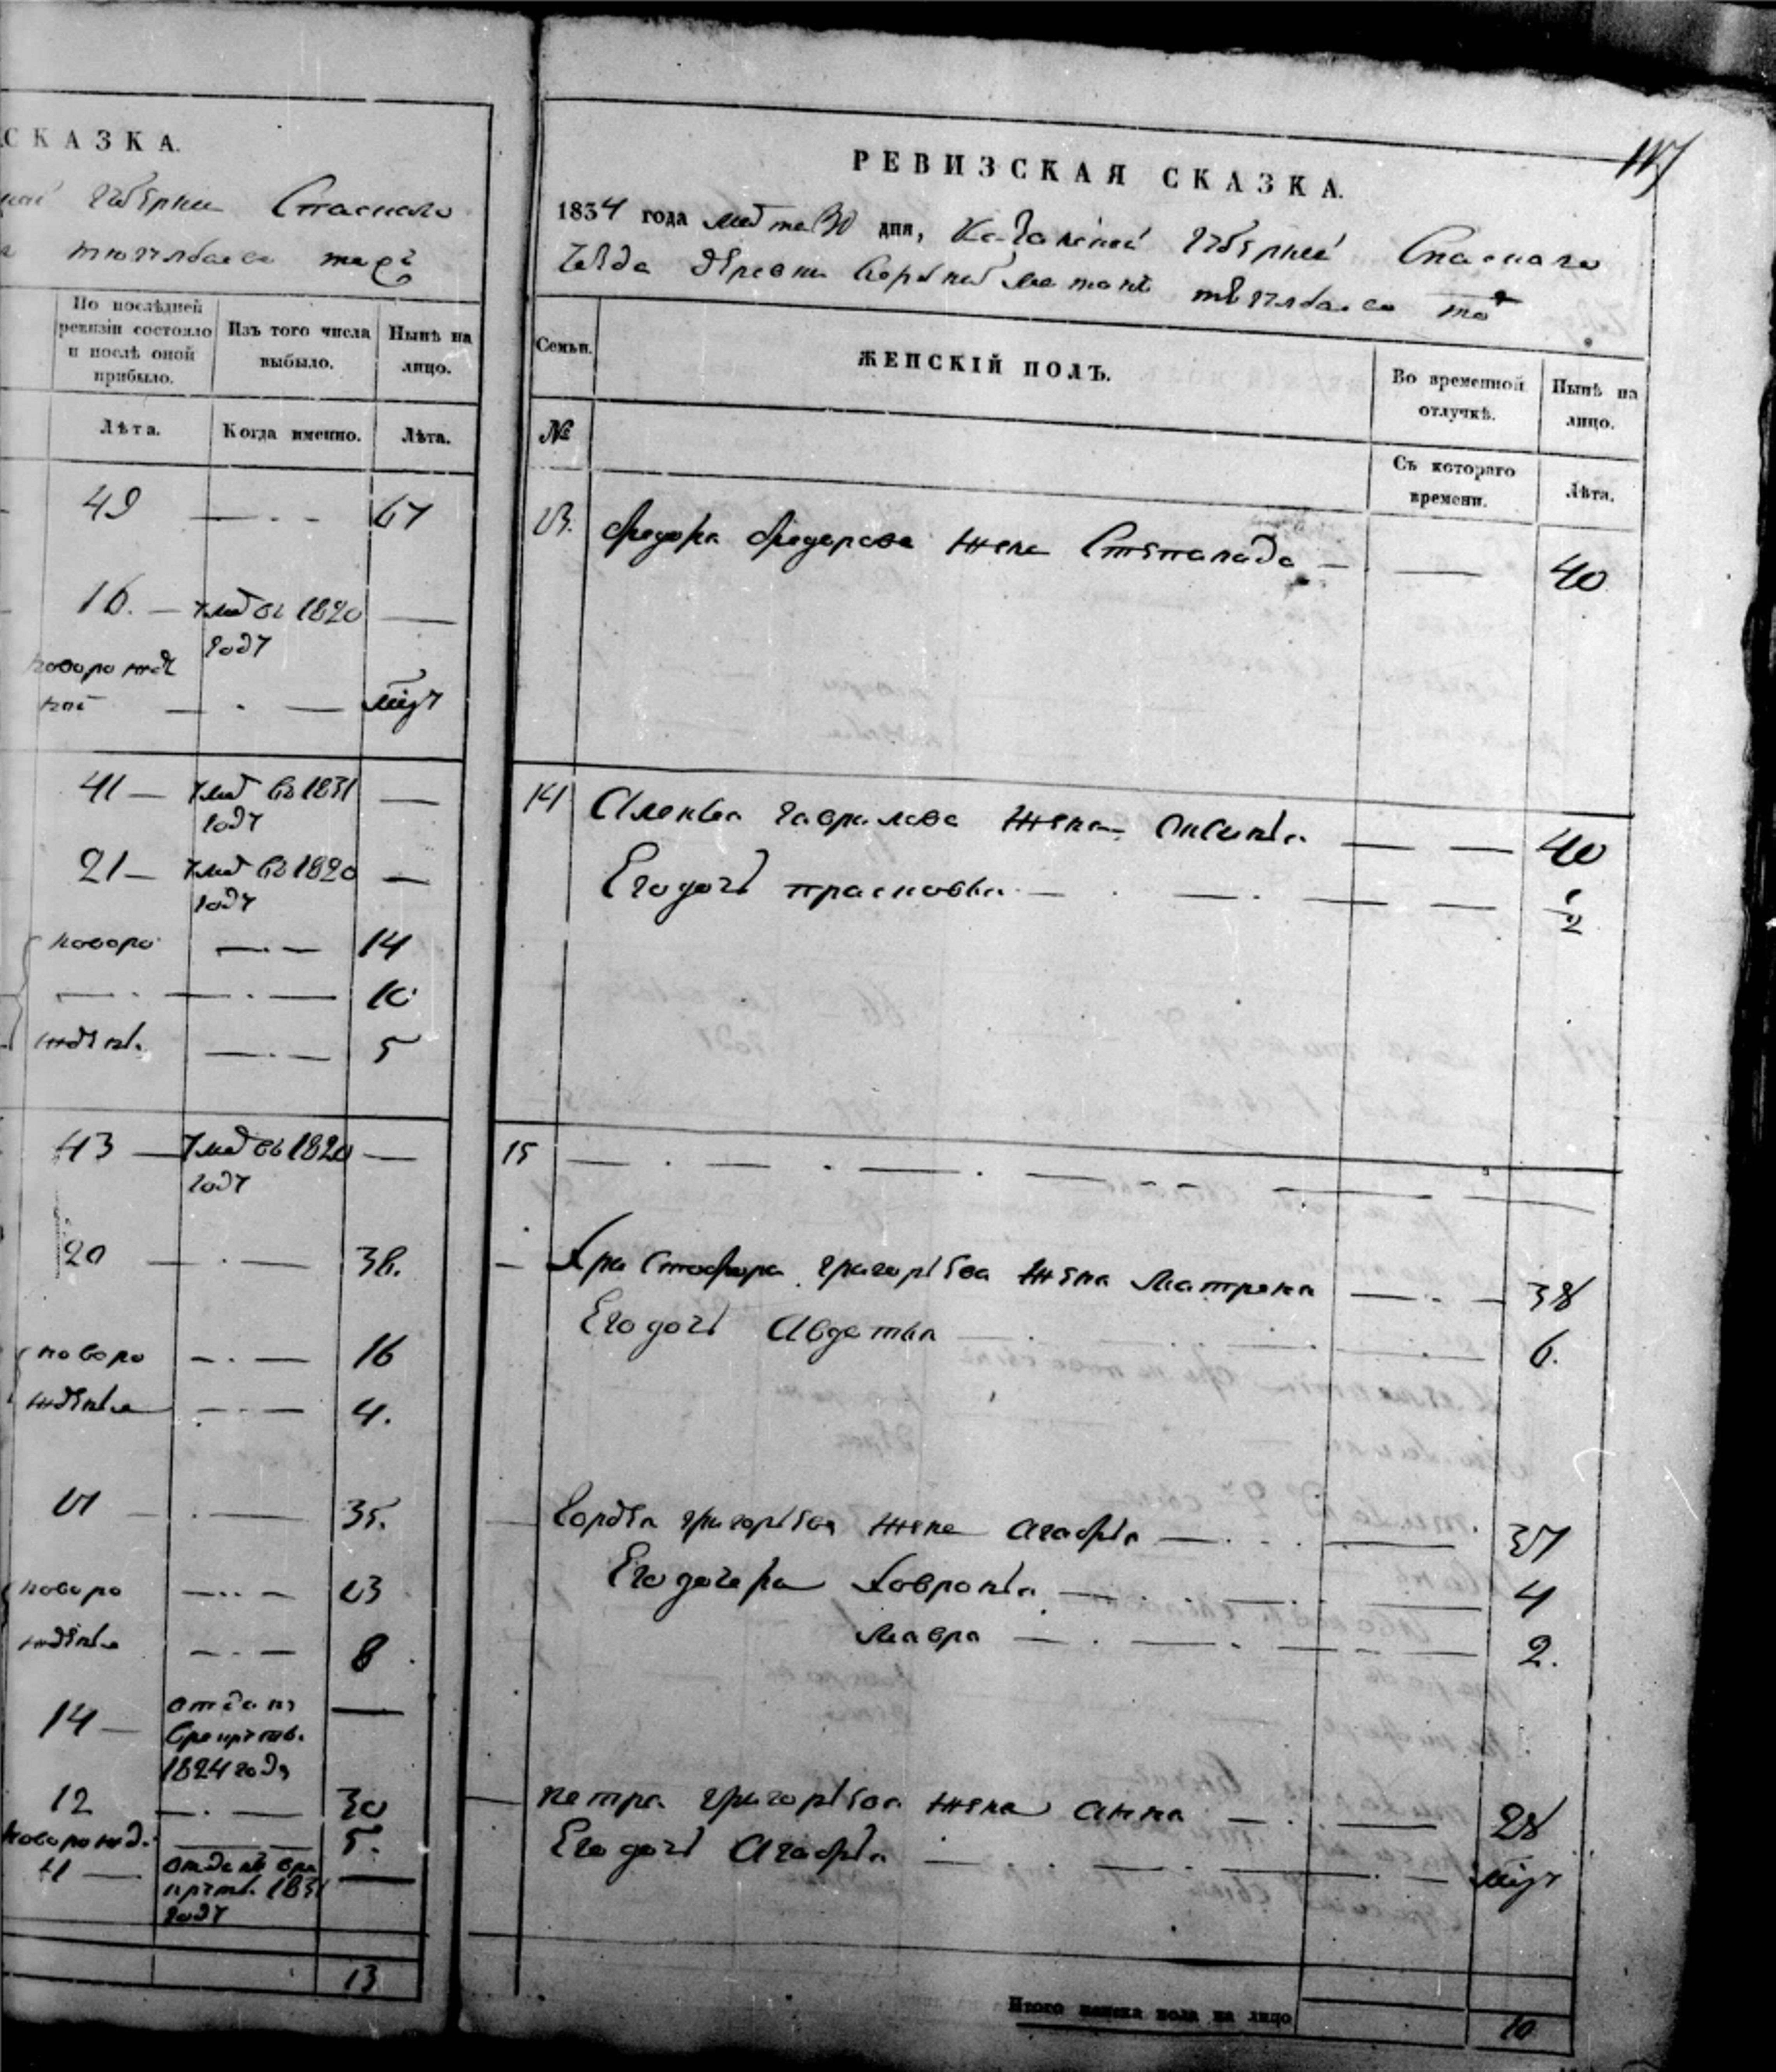 СКАЗКА.
Губернии Спаскаго
По послѣдней ревизіи состояло и послѣ оной прибыло.
Изъ того числа выбыло.
Нынѣ на лицо.
Лѣта.
Когда именно.
Лѣта.
49 — 67
16. — умѣ въ 1820 году —
новорожденной —
41 — умѣ въ 1831 году —
21 — умѣ въ 1820 году —
новоро — 14
— 10
жденные — 5
43 — умѣ въ 1820 году —
20 — 38.
новоро — 16
жденные — 4.
— 35.
новоро — 13
жденные — 8
14 — отданъ в рекруты в 1824 году —
12 — 30
новорожд. — 5.
11 — отданъ в рекруты 1831 году —
13
117
РЕВИЗСКАЯ СКАЗКА.
1834 года дня, Казанской Губерніи Спаскаго
уѣзда деревни
Семьи.
ЖЕНСКІЙ ПОЛЪ.
Во временной отлучкѣ.
Нынѣ на лицо.
№
Съ котораго времени.
Лѣта.
13. Федора Федорова жена Степанида — — 40
14 Гаврилова жена Аксинья — — 40
Его дочь Прасковья — — ½
15 —
— Христофора Григорьева жена Матрена — 38
Его дочь Авдотья — 6.
— Гордѣя Григорьева жена Агафья — 37
Его дочери Ховронья — 4
Мавра — 2.
— Петра Григорьева жена Анна — 28
Его дочь Агафья —
Итого женска пола на лицо 10